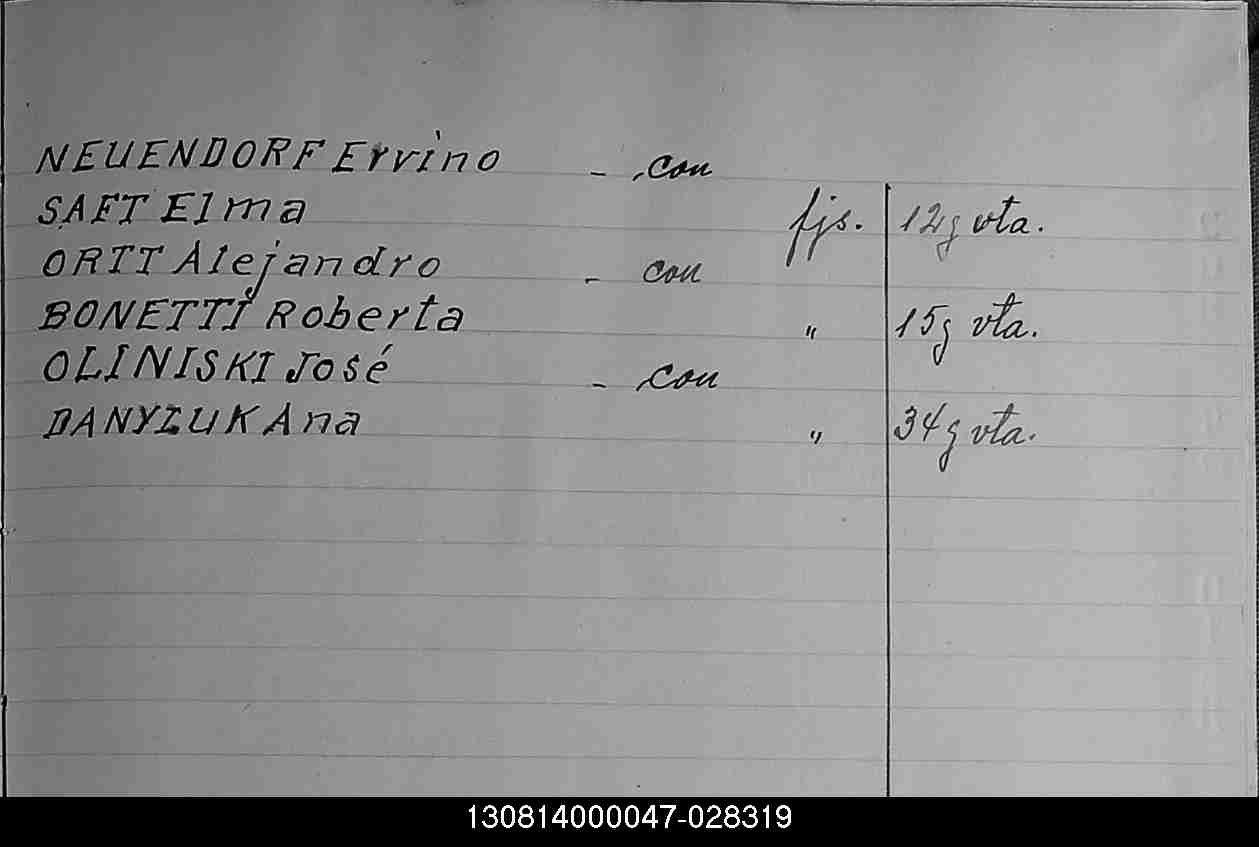 NEUENDORF Ervino - con
SAFT Elma fjs. 12 y vta.
ORTT Alejandro - con
BONETTI Roberta " 15 y vta.
OLINISKI José - con
DANYLUK Ana " 34 y vta.
130814000047-028319